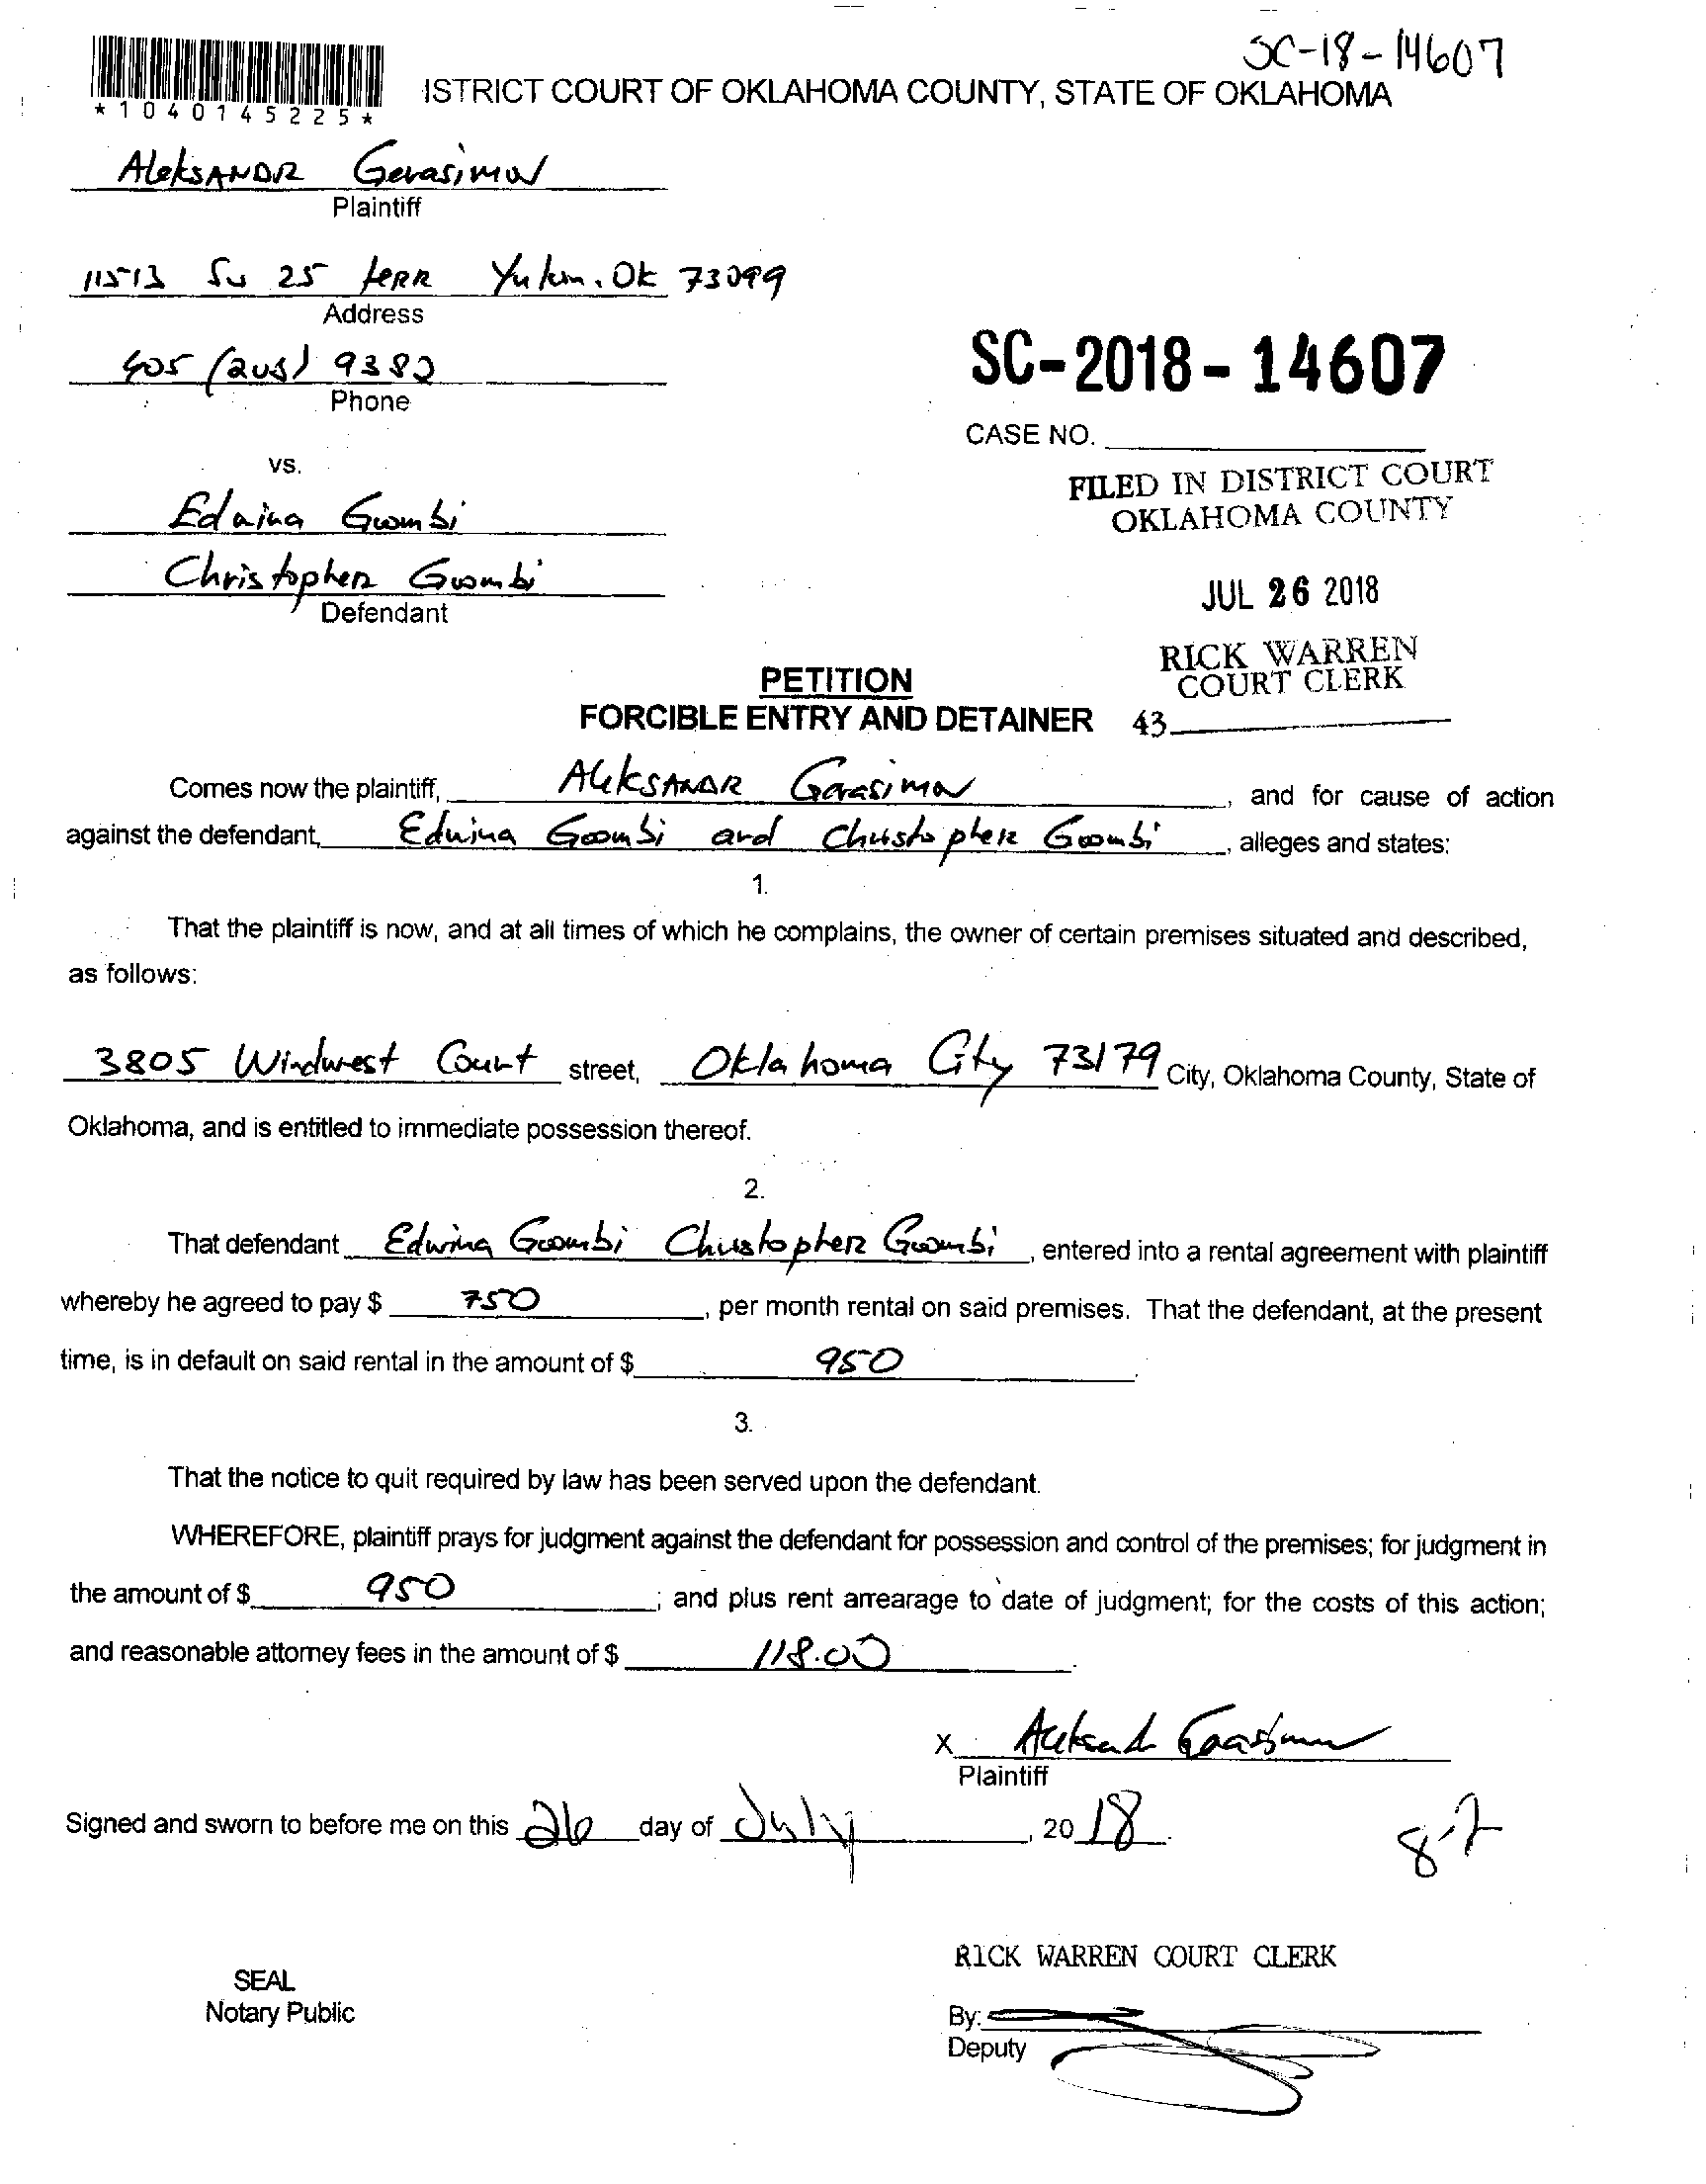 SC-18-14607
*1040145225*
ISTRICT COURT OF OKLAHOMA COUNTY, STATE OF OKLAHOMA
Aleksandr Gerasimov
Plaintiff
11513 SW 25 terr Yukon, Ok 73099
Address
405 (205) 9382
Phone
SC-2018-14607
CASE NO.
vs.
FILED IN DISTRICT COURT
OKLAHOMA COUNTY
Edwina Goombi
Christopher Goombi
Defendant
JUL 26 2018
RICK WARREN
COURT CLERK
43
PETITION
FORCIBLE ENTRY AND DETAINER
Comes now the plaintiff, Aleksandr Gerasimov, and for cause of action
against the defendant, Edwina Goombi and Christopher Goombi, alleges and states:
1.
That the plaintiff is now, and at all times of which he complains, the owner of certain premises situated and described,
as follows:
3805 Windwest Court street, Oklahoma City 73179 City, Oklahoma County, State of
Oklahoma, and is entitled to immediate possession thereof.
2.
That defendant Edwina Goombi Christopher Goombi, entered into a rental agreement with plaintiff
whereby he agreed to pay $ 750, per month rental on said premises. That the defendant, at the present
time, is in default on said rental in the amount of $ 950.
3.
That the notice to quit required by law has been served upon the defendant.
WHEREFORE, plaintiff prays for judgment against the defendant for possession and control of the premises; for judgment in
the amount of $ 950; and plus rent arrearage to date of judgment; for the costs of this action;
and reasonable attorney fees in the amount of $ 118.00.
X Aleksandr Gerasimov
Plaintiff
Signed and sworn to before me on this 26 day of July, 20 18.
8-7
RICK WARREN COURT CLERK
SEAL
Notary Public
By:
Deputy